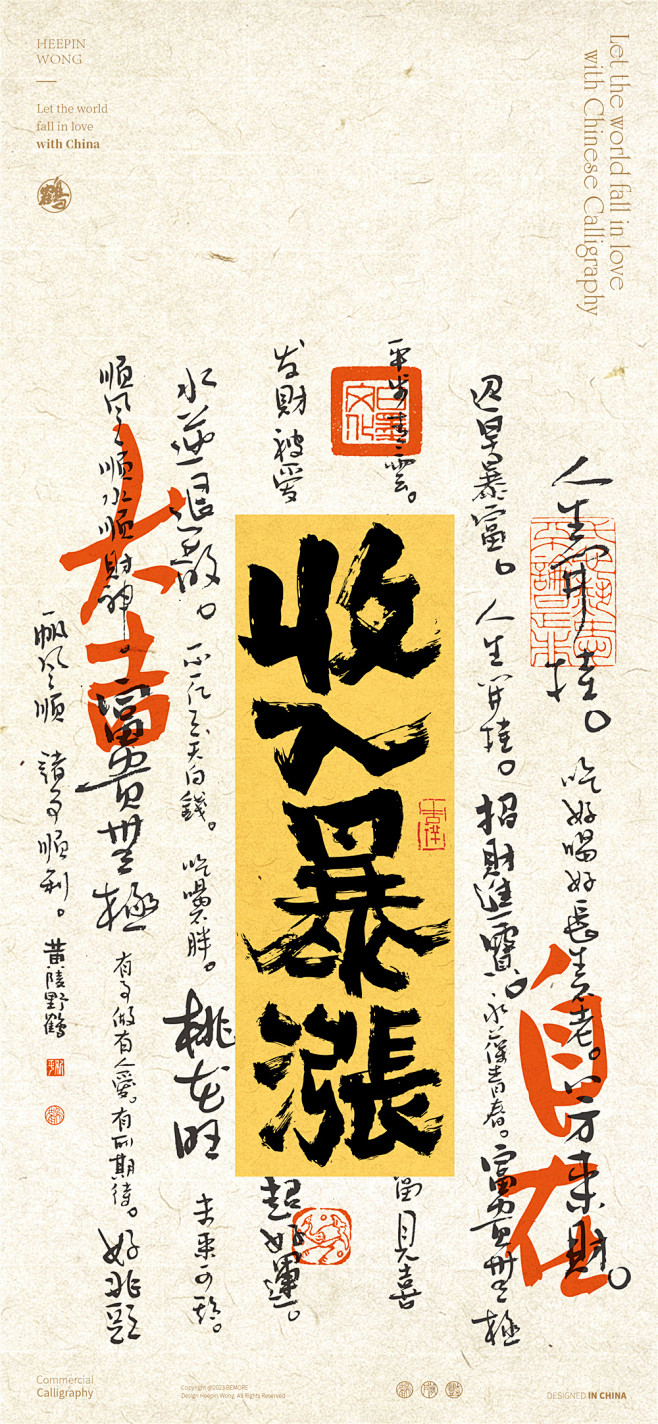 HEEPIN
WONG
Let the world
fall in love
with China
鶴
Let the world fall in love
with Chinese Calligraphy
人生開挂。吃好喝好長生不老。八方来財。
自在
迎早暴富。人生開挂。招財進寶。永葆青春。富貴無極
平步青雲。
白墨文化
收入暴漲
吉祥
發財 被愛
超好運。
富見喜
水逆退散。不亿天白錢。吃喝不胖。桃花旺
未来可期。
大吉
順風順水順財神。富貴無極
有事做有人愛。有所期待。好兆頭
帆風順 諸事順利。黄陵野鶴
Commercial
Calligraphy
Copyright @2023 BEMORE
Design Heepin Wong. All Rights Reserved
DESIGNED IN CHINA